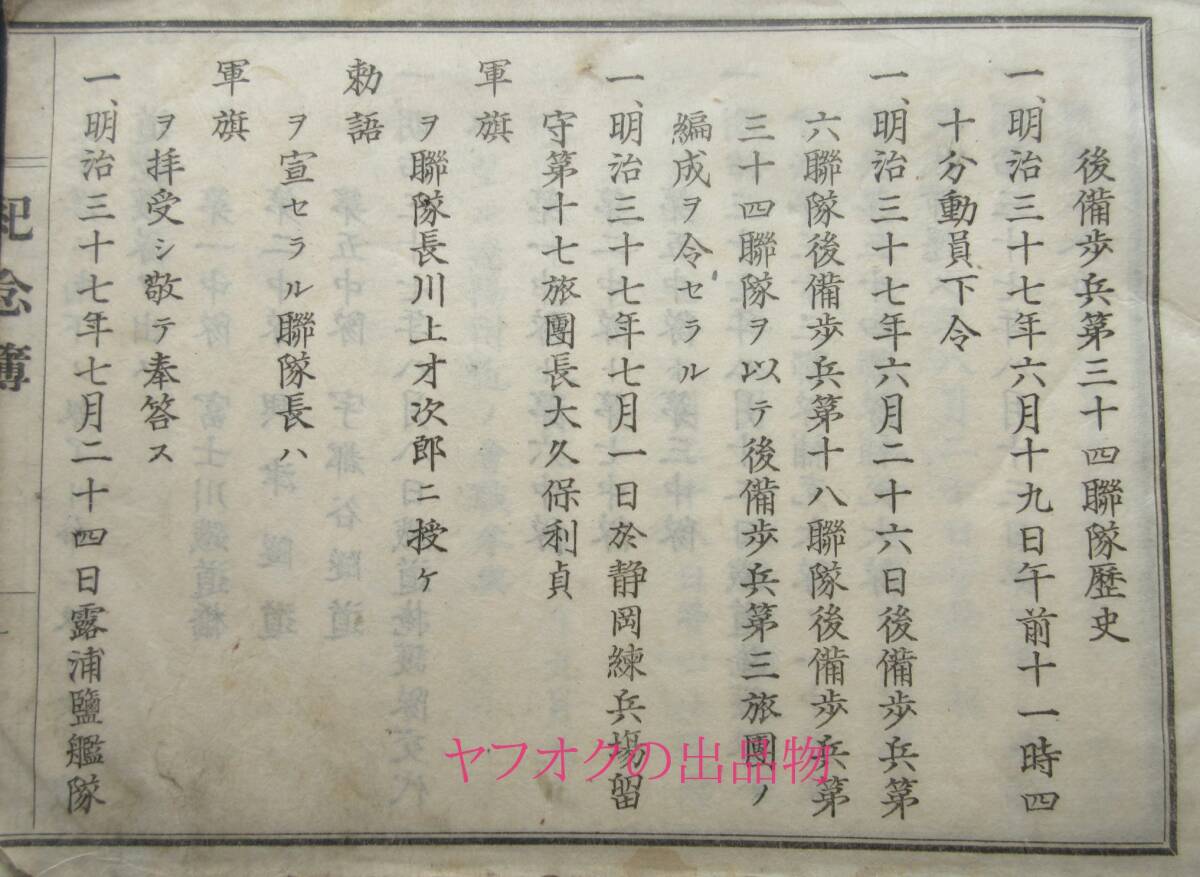 後備歩兵第三十四聯隊歷史
一、明治三十七年六月十九日午前十一時四
十分動員下令
一、明治三十七年六月二十六日後備歩兵第
六聯隊後備歩兵第十八聯隊後備歩兵第
三十四聯隊ヲ以テ後備歩兵第三旅團ノ
編成ヲ令セラル
一、明治三十七年七月一日於静岡練兵場留
守第十七旅團長大久保利貞
軍旗
ヲ聯隊長川上才次郎ニ授ケ
勅語
ヲ宣セラル聯隊長ハ
軍旗
ヲ拝受シ敬テ奉答ス
一、明治三十七年七月二十四日露浦鹽艦隊
紀念簿
ヤフオクの出品物